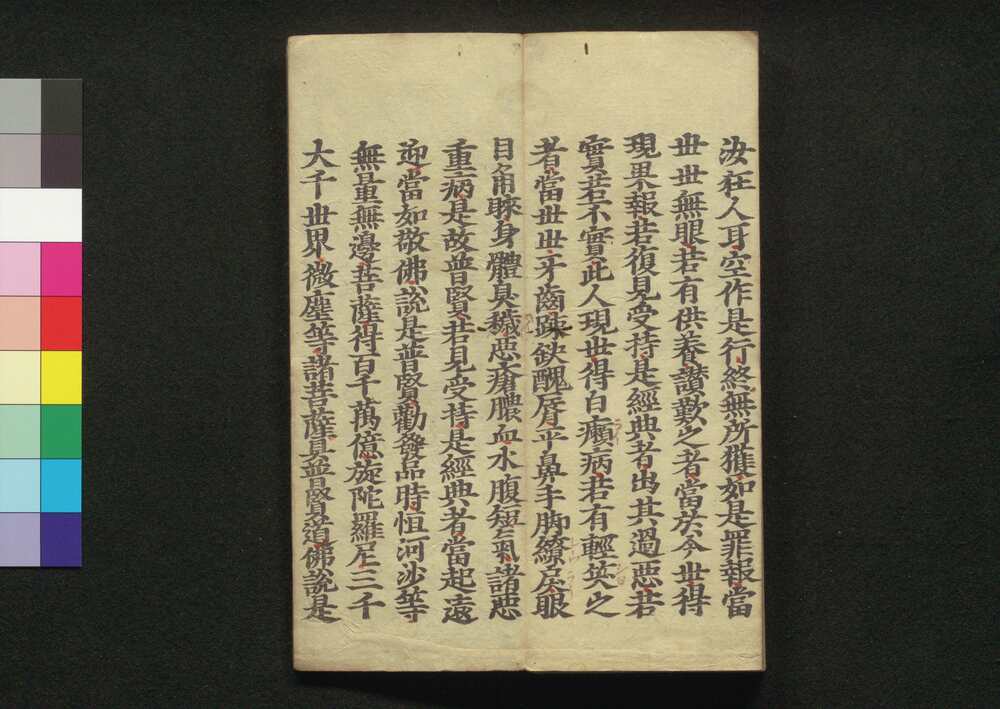 汝狂人耳空作是行終無所獲如是罪報當
世世無眼若有供養讃歎之者當於今世得
現果報若復見受持是經典者出其過惡若
實若不實此人現世得白癩病若有輕笑之
者當世世牙齒踈缺醜脣平鼻手脚繚戾眼
目角睞身體臭穢惡瘡膿血水腹短氣諸惡
重病是故普賢若見受持是經典者當起遠
迎當如敬佛說是普賢勸發品時恒河沙等
無量無邊菩薩得百千萬億旋陀羅尼三千
大千世界微塵等諸菩薩具普賢道佛說是